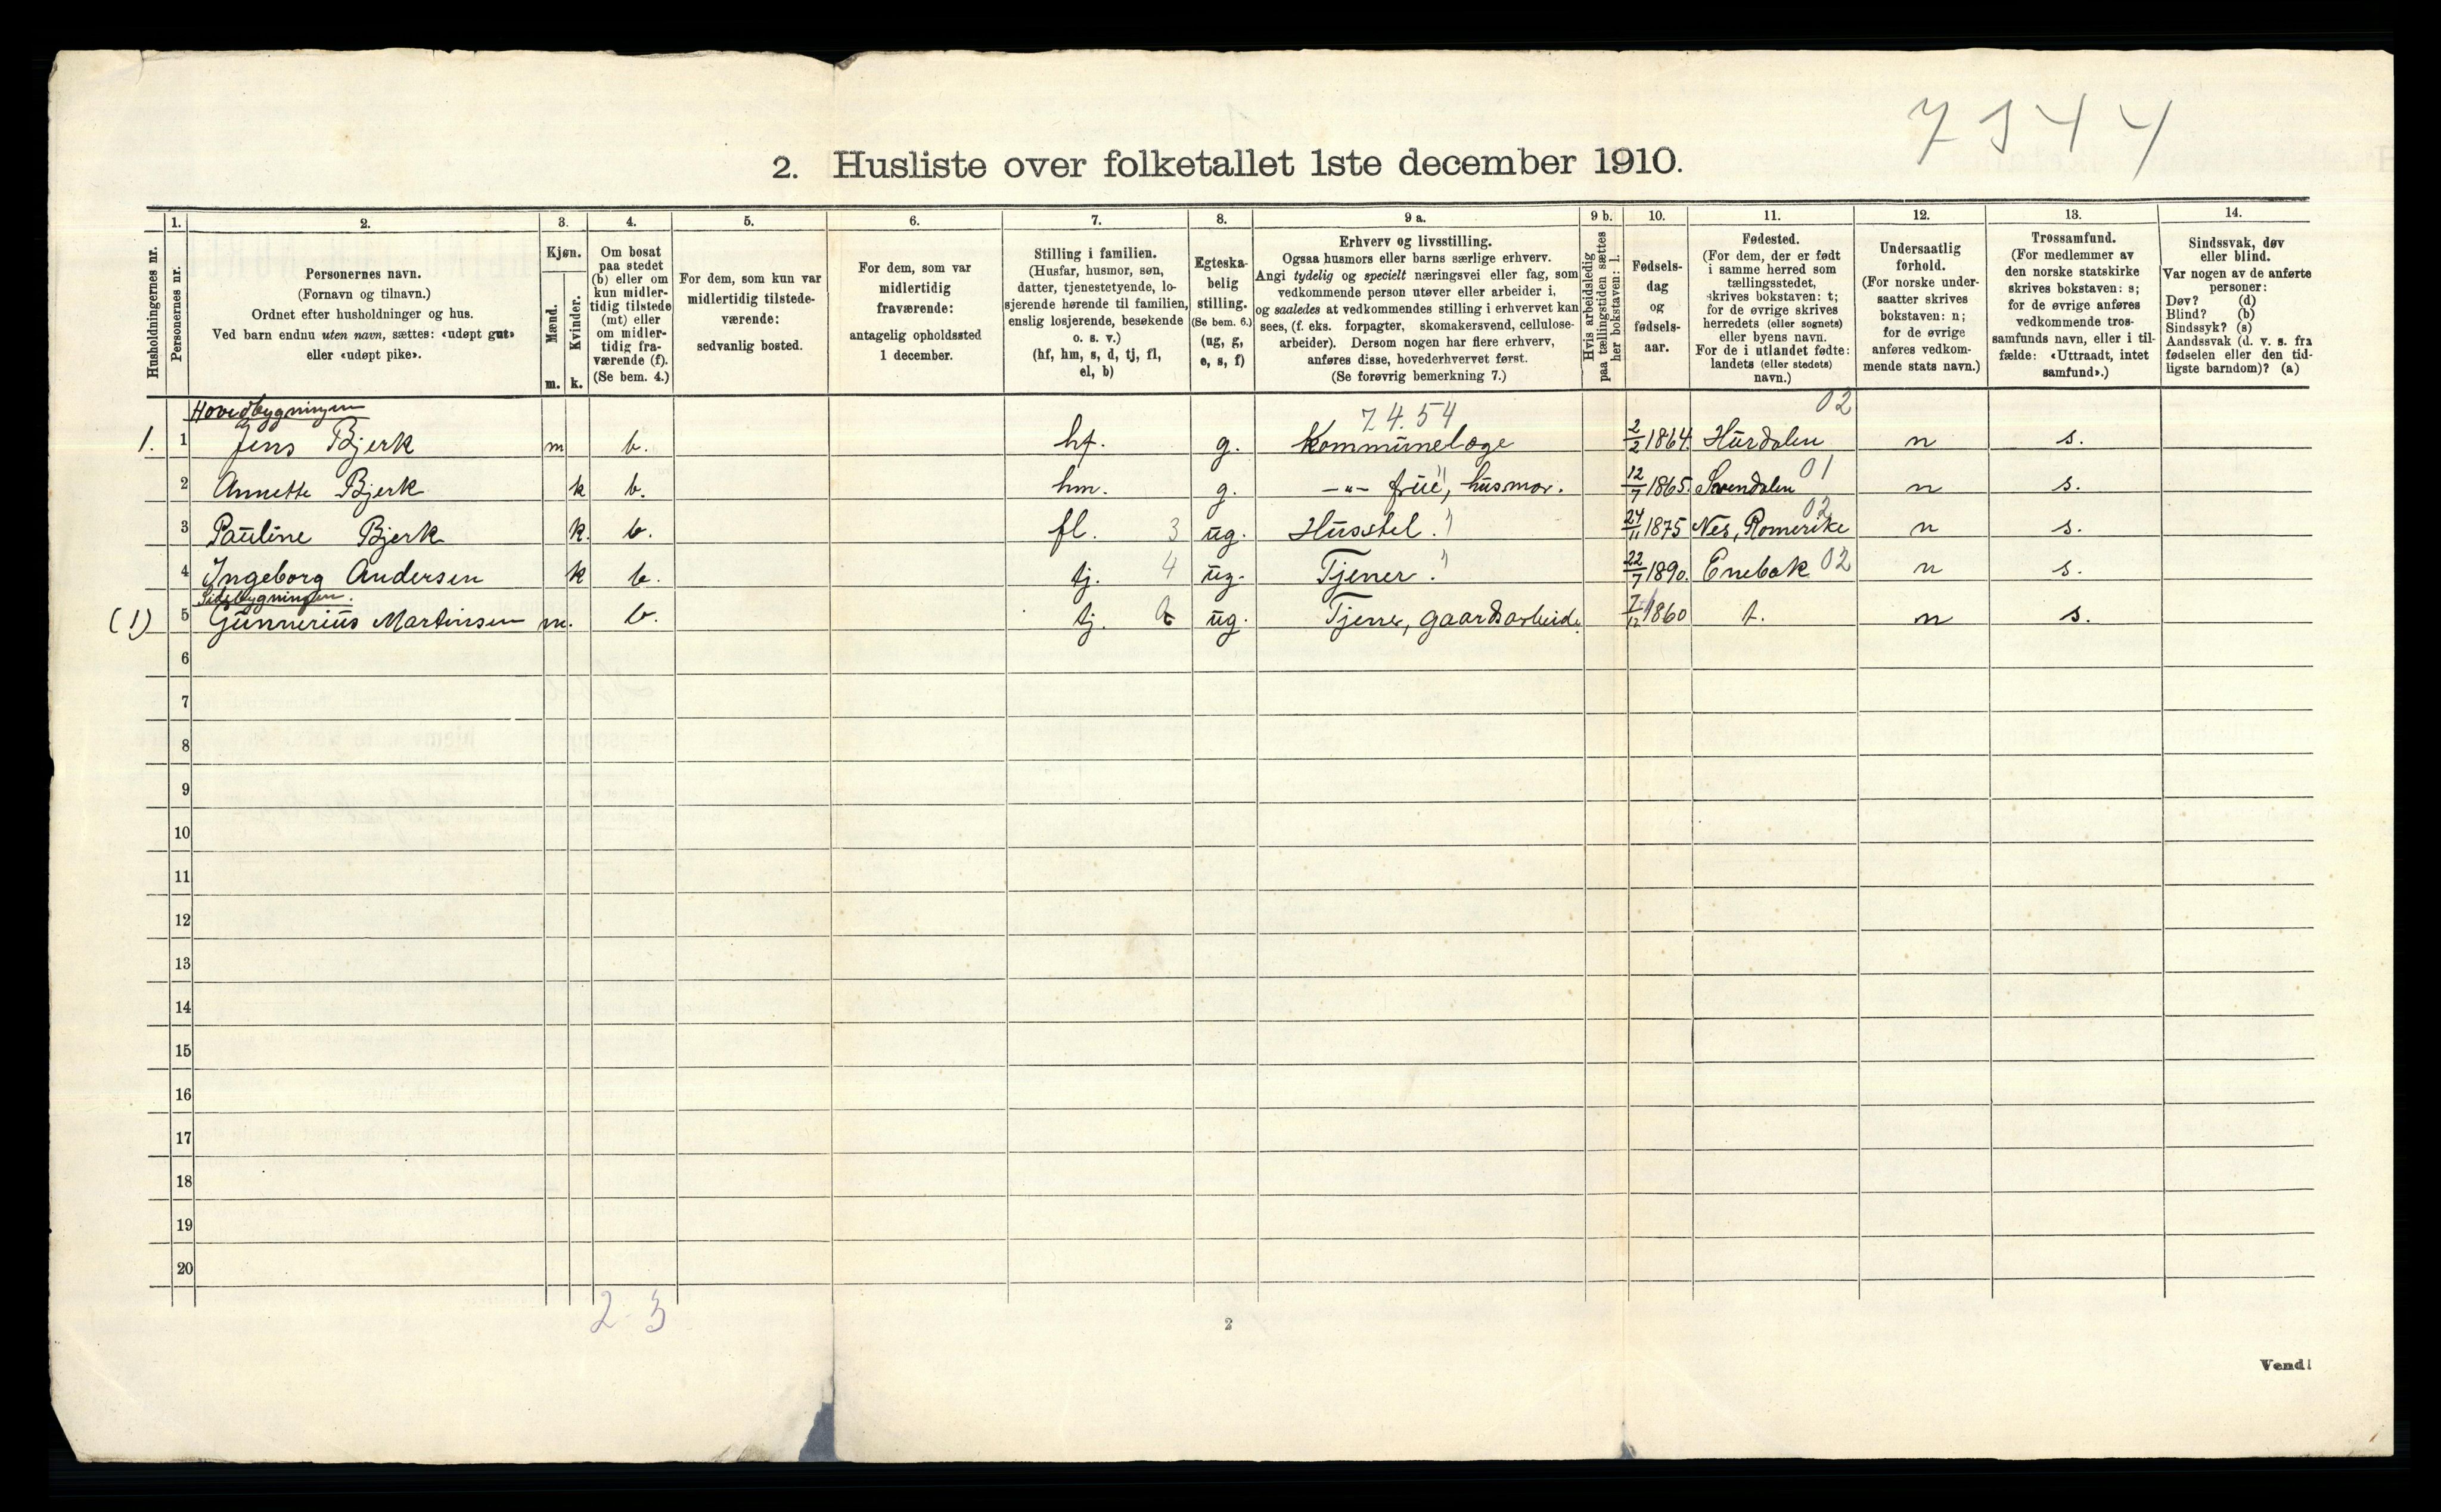 7344
2. Husliste over folketallet 1ste december 1910.
Husholdningernes nr.
1. Personernes nr.
2. Personernes navn.
(Fornavn og tilnavn.)
Ordnet efter husholdninger og hus.
Ved barn endnu uten navn, sættes: «udøpt gut»
eller «udøpt pike».
3. Kjøn.
Mænd. Kvinder.
m. k.
4. Om bosat
paa stedet
(b) eller om
kun midler-
tidig tilstede
(mt) eller
om midler-
tidig fra-
værende (f).
(Se bem. 4.)
5. For dem, som kun var
midlertidig tilstede-
værende:
sedvanlig bosted.
6. For dem, som var
midlertidig
fraværende:
antagelig opholdssted
1 december.
7. Stilling i familien.
(Husfar, husmor, søn,
datter, tjenestetyende, lo-
sjerende hørende til familien,
enslig losjerende, besøkende
o. s. v.)
(hf, hm, s, d, tj, fl,
el, b)
8. Egteska-
belig
stilling.
(Se bem. 6.)
(ug, g,
e, s, f)
9 a. Erhverv og livsstilling.
Ogsaa husmors eller barns særlige erhverv.
Angi tydelig og specielt næringsvei eller fag, som
vedkommende person utøver eller arbeider i,
og saaledes at vedkommendes stilling i erhvervet kan
sees, (f. eks. forpagter, skomakersvend, cellulose-
arbeider). Dersom nogen har flere erhverv,
anføres disse, hovederhvervet først.
(Se forøvrig bemerkning 7.)
9 b. Hvis arbeidsledig
paa tællingstiden sættes
her bokstaven: l.
10. Fødsels-
dag
og
fødsels-
aar.
11. Fødested.
(For dem, der er født
i samme herred som
tællingsstedet,
skrives bokstaven: t;
for de øvrige skrives
herredets (eller sognets)
eller byens navn.
For de i utlandet fødte:
landets (eller stedets)
navn.)
12. Undersaatlig
forhold.
(For norske under-
saatter skrives
bokstaven: n;
for de øvrige
anføres vedkom-
mende stats navn.)
13. Trossamfund.
(For medlemmer av
den norske statskirke
skrives bokstaven: s;
for de øvrige anføres
vedkommende tros-
samfunds navn, eller i til-
fælde: «Uttraadt, intet
samfund».)
14. Sindssvak, døv
eller blind.
Var nogen av de anførte
personer:
Døv? (d)
Blind? (b)
Sindssyk? (s)
Aandssvak (d. v. s. fra
fødselen eller den tid-
ligste barndom)? (a)
Hovedbygningen 7.4.54 02
1. 1 Jens Bjerk m b. hf. g. Kommunelæge 2/2 1864 Hurdalen n s.
2 Annette Bjerk k b. hm. g. —"— frue, husmor. 12/7 1865 01 n s.
3 Pauline Bjerk k. b. fl. 3 ug. Husstel. 24/11 1875 Nes, Romerike 02 n s.
4 Ingeborg Andersen k b. tj. 4 ug. Tjener. 22/7 1890. Enebak 02 n s.
Sidebygningen.
(1) 5 Gunnerius Martinsen m. b. tj. ug. Tjener, gaardsarbeide 7/12 1860 t. n s.
6
7
8
9
10
11
12
13
14
15
16
17
18
19
20
2-3
2
Vend!